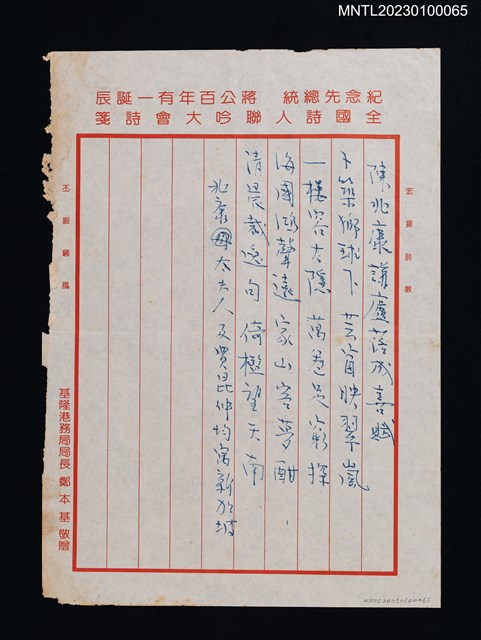 MNTL20230100065
紀念先總統 蔣公百年有一誕辰
全國詩人聯吟大會詩箋
宏宣詩教
陳兆康講廬落成喜賦
卜築獅球下 芸窗映翠嵐
一樓容大隱 萬卷足窮探
海國鴻聲遠 家山客夢酣
清晨裁逸句 倚檻望天南
兆康母太夫人及賢昆仲均寓新加坡
丕振騷風
基隆港務局局長 鄭本基 敬贈
MNTL20230100065